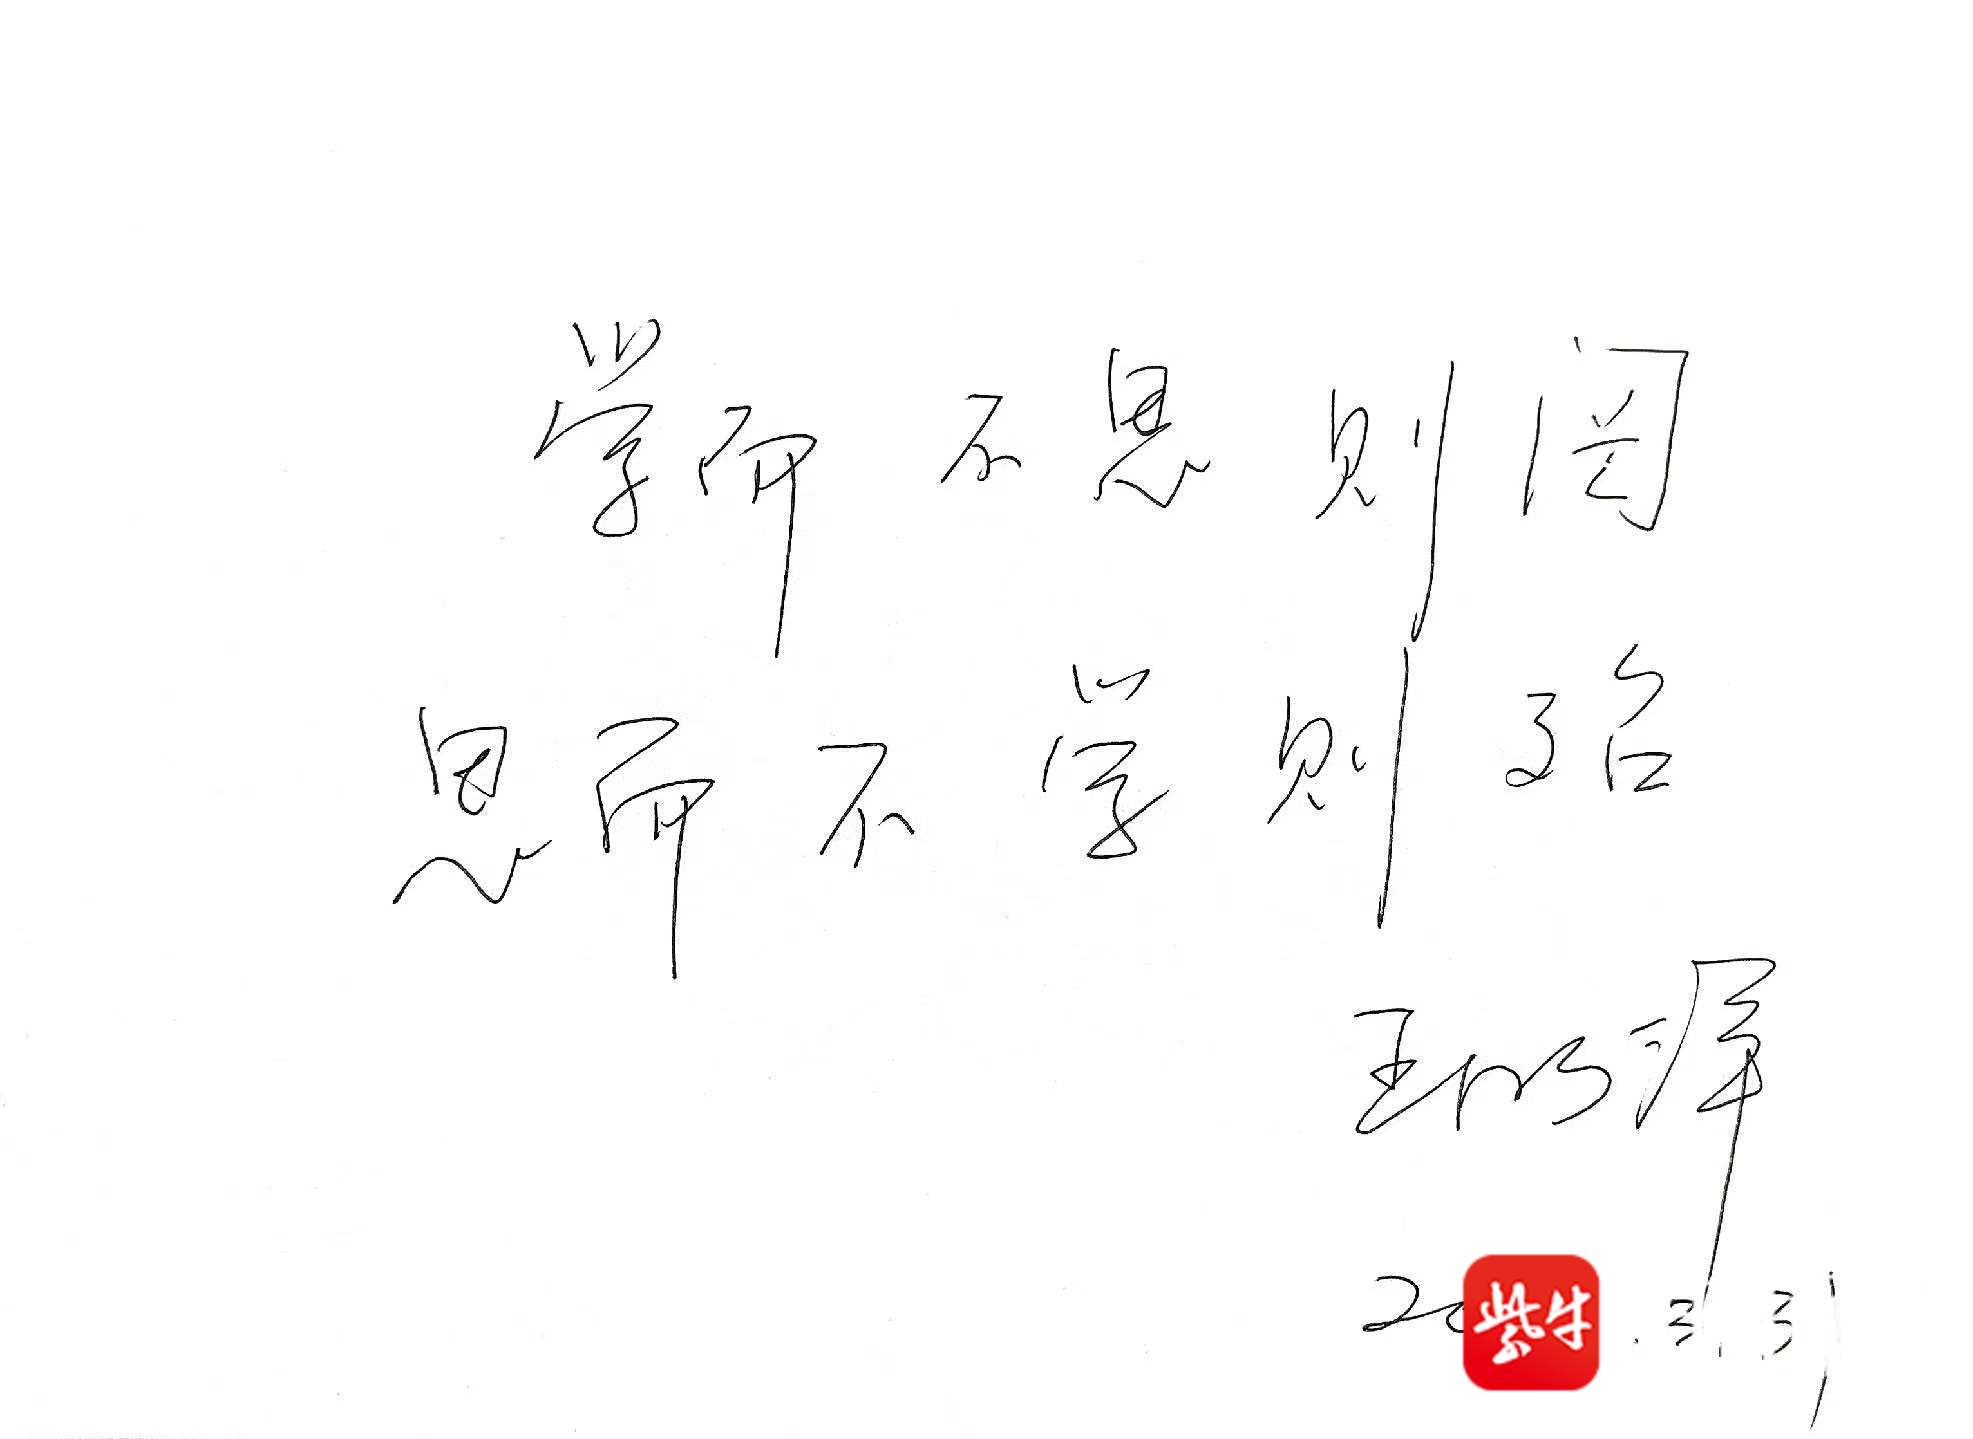 学而不思则罔
思而不学则殆
王明洋
20 .3.31
紫牛